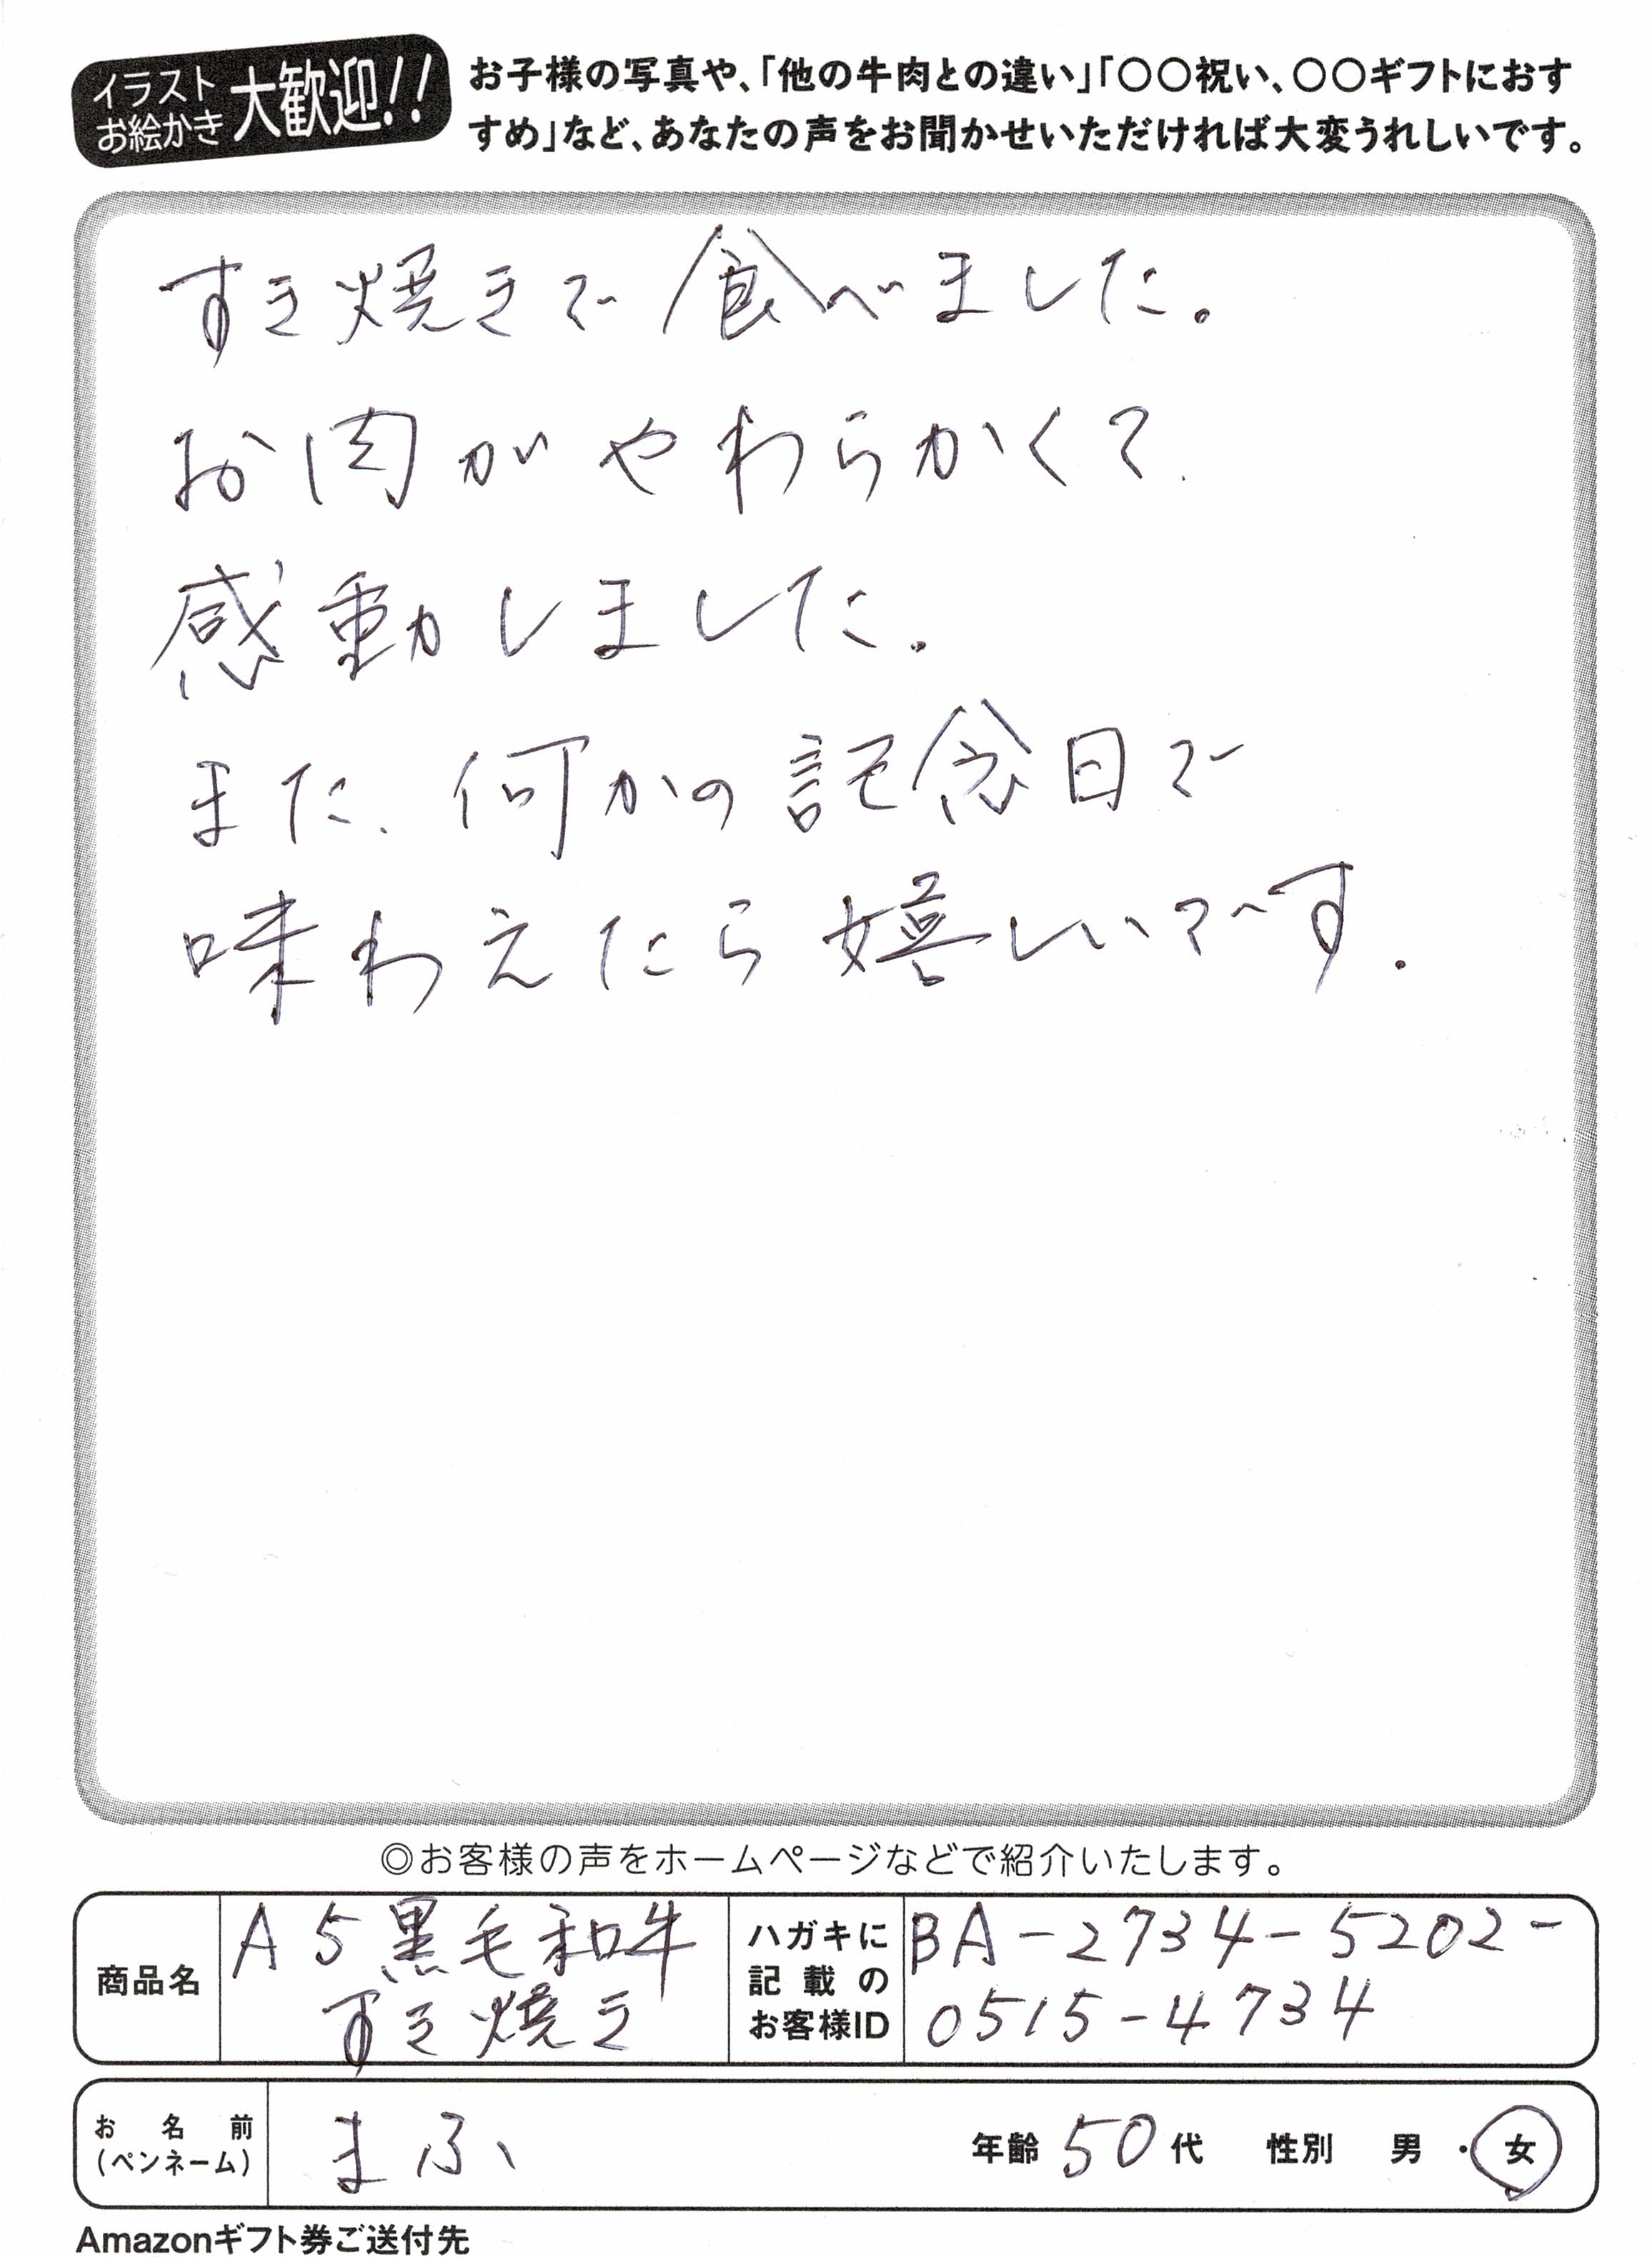 イラスト
お絵かき
大歓迎!!
お子様の写真や、「他の牛肉との違い」「〇〇祝い、〇〇ギフトにおす
すめ」など、あなたの声をお聞かせいただければ大変うれしいです。
すき焼きで食べました。
お肉がやわらかくて、
感動しました。
また、何かの記念日で
味わえたら嬉しいです。
◎お客様の声をホームページなどで紹介いたします。
商品名
A5黒毛和牛
すき焼き
ハガキに
記載の
お客様ID
BA-2734-5202-
0515-4734
お名前
(ペンネーム)
まふ
年齢 50代 性別 男・女
Amazonギフト券ご送付先